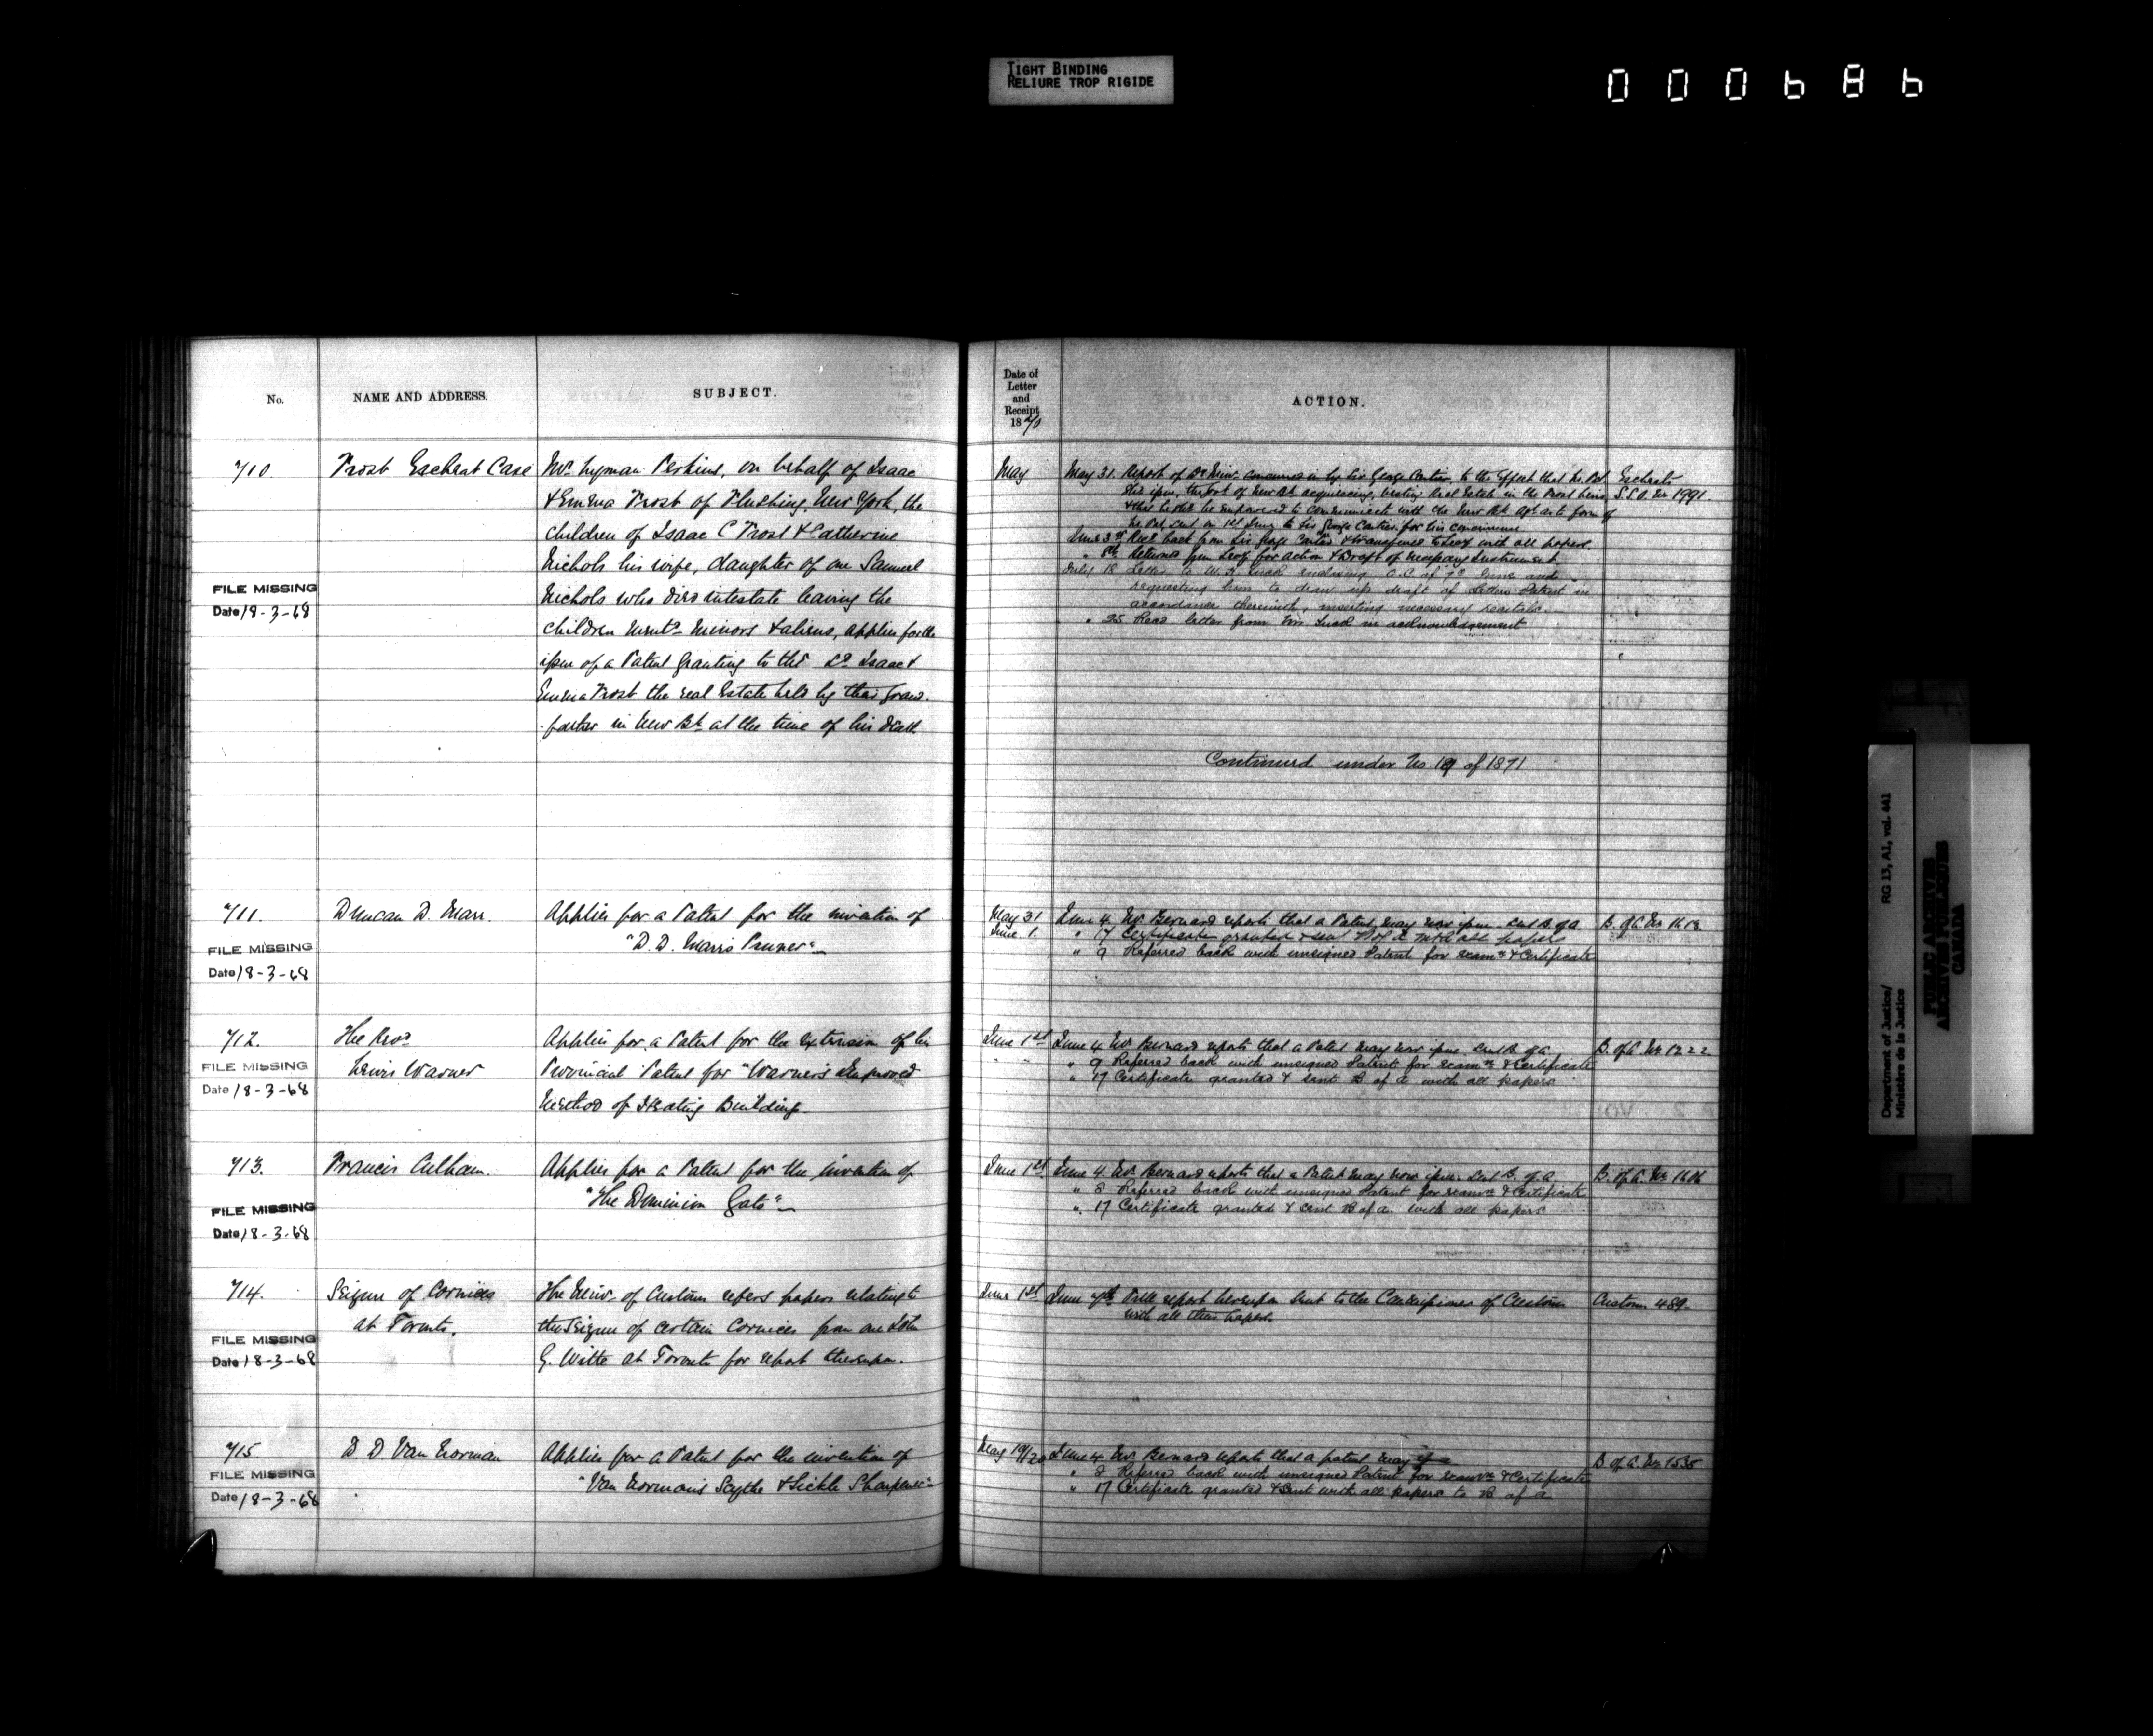 TIGHT BINDING
RELIURE TROP RIGIDE
000686
No.
NAME AND ADDRESS.
SUBJECT.
Date of
Letter
and
Receipt
1870
ACTION.
710.
Frost Escheat Case
Mr. Lyman Perkins, on behalf of Isaac
& Emma Frost of Flushing, New York, the
children of Isaac C Frost & Catherine
Nichols his wife, daughter of one Samuel
Nichols who died intestate leaving the
children ment'd minors & aliens, applies for the
issue of a Patent granting to the sd Isaac &
Emma Frost the real Estate held by their Grand-
father in New Bk at the time of his death
FILE MISSING
Date 18-3-68
May
May 31. Report of Dr Minr. concurred in by Sir George Cartier, to the Effect that Lr. Pat.
Shd issue, the Govt of New Bk acquiescing, vesting Real Estate in the Frost heirs
to Sir George Cartier for his concurrence
June 3rd Recd back from Sir George Cartier & transferred to with all papers.
" 8th Returned from for action & Draft of necessary Instrument.
July 18 Letter to enclosing O.C. of 7th June and
requesting him to draw up draft of Letters Patent in
accordance therewith, inserting necessary recitals.
" 25 Recd letter from in acknowledgement
Escheats
S.S.O. No 1991.
Continued under No 19 of 1871
711.
FILE MISSING
Date 18-3-68
Duncan D. Marr.
Applies for a Patent for the invention of
"D. D. Marr's Pruner"
May 31
June 1.
June 4. Mr. Bernard reports that a Patent may now issue. Sent B. of A
" 17 Certificate granted & sent B of A with all papers
" 9 Referred back with unsigned Patent for examn & Certificate
B. of A. No 1618
712.
FILE MISSING
Date 18-3-68
The Revd
Lewis Warner
Applies for a Patent for the extension of his
Provincial Patent for "Warner's Improved
Method of Heating Buildings
June 1st
June 4 Mr Bernard reports that a Patent may now issue. Sent B. of A
" 9 Referred back with unsigned Patent for examn & Certificate
" 17 Certificate granted & sent B of A with all papers
B. of A. No 1222
713.
FILE MISSING
Date 18-3-68
Francis Culham.
Applies for a Patent for the invention of
"The Dominion Gate"
June 1st
June 4 Mr. Bernard reports that a Patent may now issue. Sent B. of A
" 8 Referred back with unsigned Patent for examn & Certificate
" 17 Certificate granted & sent B of A. with all papers
B. of A. No 1606
714.
FILE MISSING
Date 18-3-68
Seizure of Cornices
at Toronto.
The Minr. of Customs refers papers relating to
the Seizure of certain Cornices from one John
G. Witte at Toronto for report thereupon.
June 1st
June 7th report hereupon sent to the Commissioner of Customs
with all their papers.
Customs 489
715
FILE MISSING
Date 18-3-68
D. D. Van Norman
Applies for a Patent for the invention of
"Van Norman's Scythe & Sickle Sharpener"
May 19/20
June 4 Mr. Bernard reports that a patent may
" 8 Referred back with unsigned Patent for examn & Certificate
" 17 Certificate granted & sent with all papers to B of A
B. of A. No 1535
RG 13, A1, vol. 441
Department of Justice/
Ministère de la Justice
PUBLIC ARCHIVES
ARCHIVES PUBLIQUES
CANADA